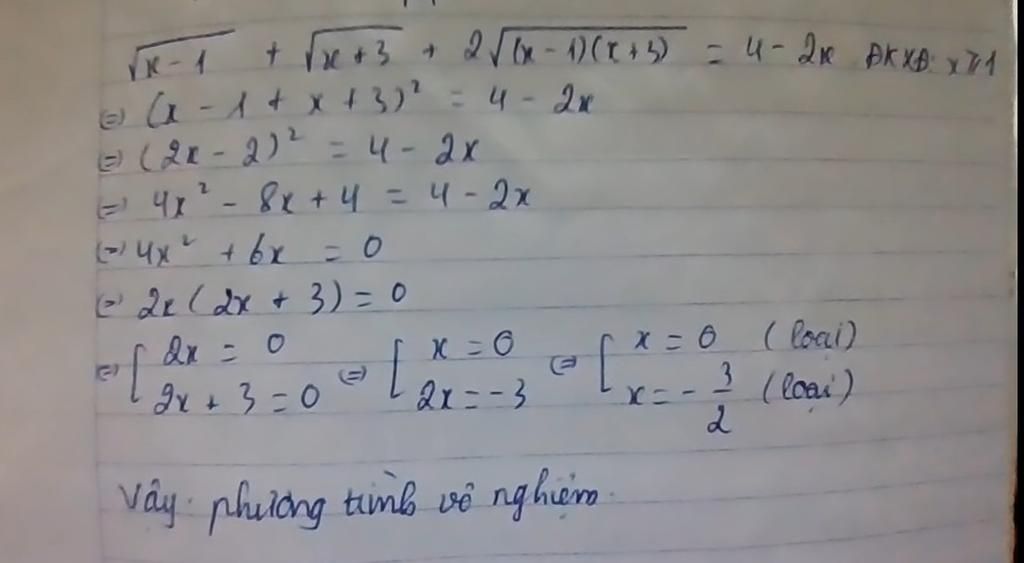 √(x-1) + √(x+3) + 2√((x-1)(x+3)) = 4 - 2x ĐKXĐ: x ≥ 1
(=) (x - 1 + x + 3)² = 4 - 2x
(=) (2x - 2)² = 4 - 2x
(=) 4x² - 8x + 4 = 4 - 2x
(=) 4x² + 6x = 0
(=) 2x(2x + 3) = 0
(=) [ 2x = 0 (=) [ x = 0 (=) [ x = 0 (loại)
2x + 3 = 0 2x = -3 x = -3/2 (loại)
Vậy phương trình vô nghiệm.